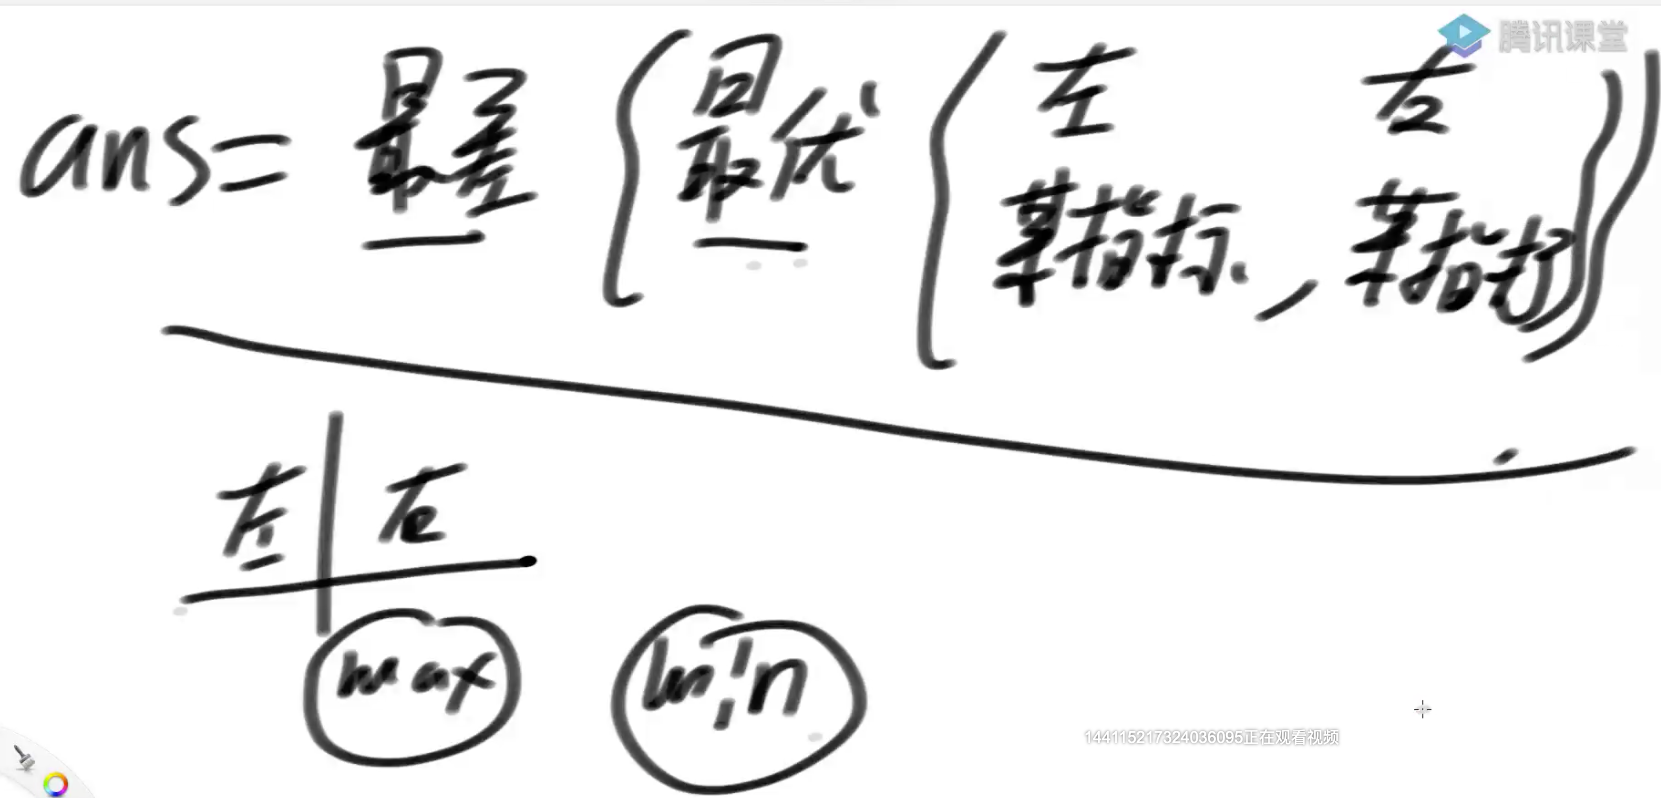 腾讯课堂
ans = 最差 { 最优 { 左 右
某指标, 某指标 } }
左 | 右
max min
144115217324036095正在观看视频